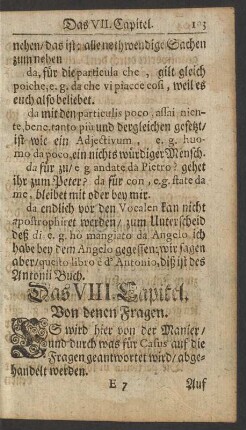 Das VII. Capitel. 103
nehen/ das ist; alle nothwendige Sachen
zum nehen
da, für die particula che, gilt gleich
poiche, e.g. da che vi piacce così, weil es
euch also beliebet.
da mit den particulis poco, assai nien-
te, bene, tanto più und dergleichen gesetzt/
ist wie ein Adjectivum, e.g. huo-
mo da poco, ein nichts würdiger Mensch.
da für zu/ e g andate da Pietro? gehet
ihr zum Peter? da für con, e.g. state da
me, bleibet mit oder bey mir.
da endlich vor den Vocalen kan nicht
apostrophiret worden/ zum Unterscheid
deß di e.g. hò mangiato da Angelo, ich
habe bey dem Angelo gegessen; wir sagen
aber/ questo libro è d' Antonio, diß ist des
Antonii Buch.
Das VIII. Capitel.
Von denen Fragen.
ES wird hier von der Manier/
und durch was für Casus auf die
Fragen geantwortet wird/ abge-
handelt werden.
E 7 Auf